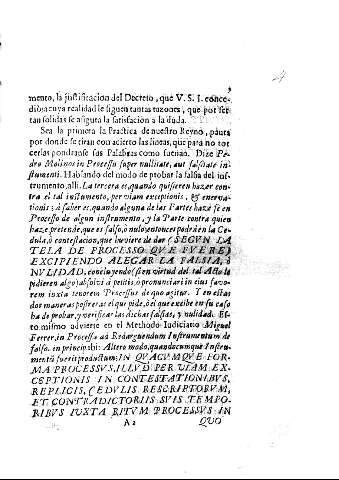 3
mento, la justificacion del Decreto, que V. S. I. conce-
diò; cuya realidad se siguen tantas razones, que por ser
tan solidas se assegura la satisfacion à la duda.
Sea la primera la Practica de nuestro Reyno, pauta
por donde se tiran con acierto las lineas, que para no tor-
cerlas pondranse sus Palabras como suenan. Dize Pe-
dro Molinos in Processu super nullitate, aut falsitate in-
strumenti. Hablando del modo de probar la falsia del ins-
trumento, alli. La tercera es, quando quisieren hazer con-
tra el tal instrumento, per viam exceptionis, & enerva-
tionis; à saber es, quando alguna de las Partes hazè fè en
Processo de algun instrumento, y la Parte contra quien
haze pretende, que es falso, ò nulo, entonces podrà en la Ce-
dula, ò contestacion, que huviere de dar (SEGVN LA
TELA DE PROCESSO QVE FVERE)
EXCIPIENDO ALEGAR LA FALSIA, ò
NVLIDAD, concluyendo (si en virtud del tal Acto le
pidieren algo) absolvi à petitis, ò pronuntiari in eius favo-
rem iuxta tenorem Processus de quo agitur. Y en estas
dos maneras postreras el que pide, ò el que excibe en su caso
ha de probar, y verificar las dichas falsias, y nulidad. Es-
to mismo advierte en el Methodo Iudiciario Miguel
Ferrer, in Processu ad Redarguendum Instrumentum de
falso. in principibi: Altero modo, quandocumque Instru-
mentũ fuerit productum: IN QVACVMQVE FOR-
MA PROCESSVS, ILLVD PER VIAM EX-
CEPTIONIS IN CONTESTATIONIBVS,
REPLICIS, CEDVLIS RESCRIPTORVM,
ET CONTRADICTORIIS SVIS TEMPO-
RIBVS IVXTA RITVM PROCESSVS IN
A 2 QVO